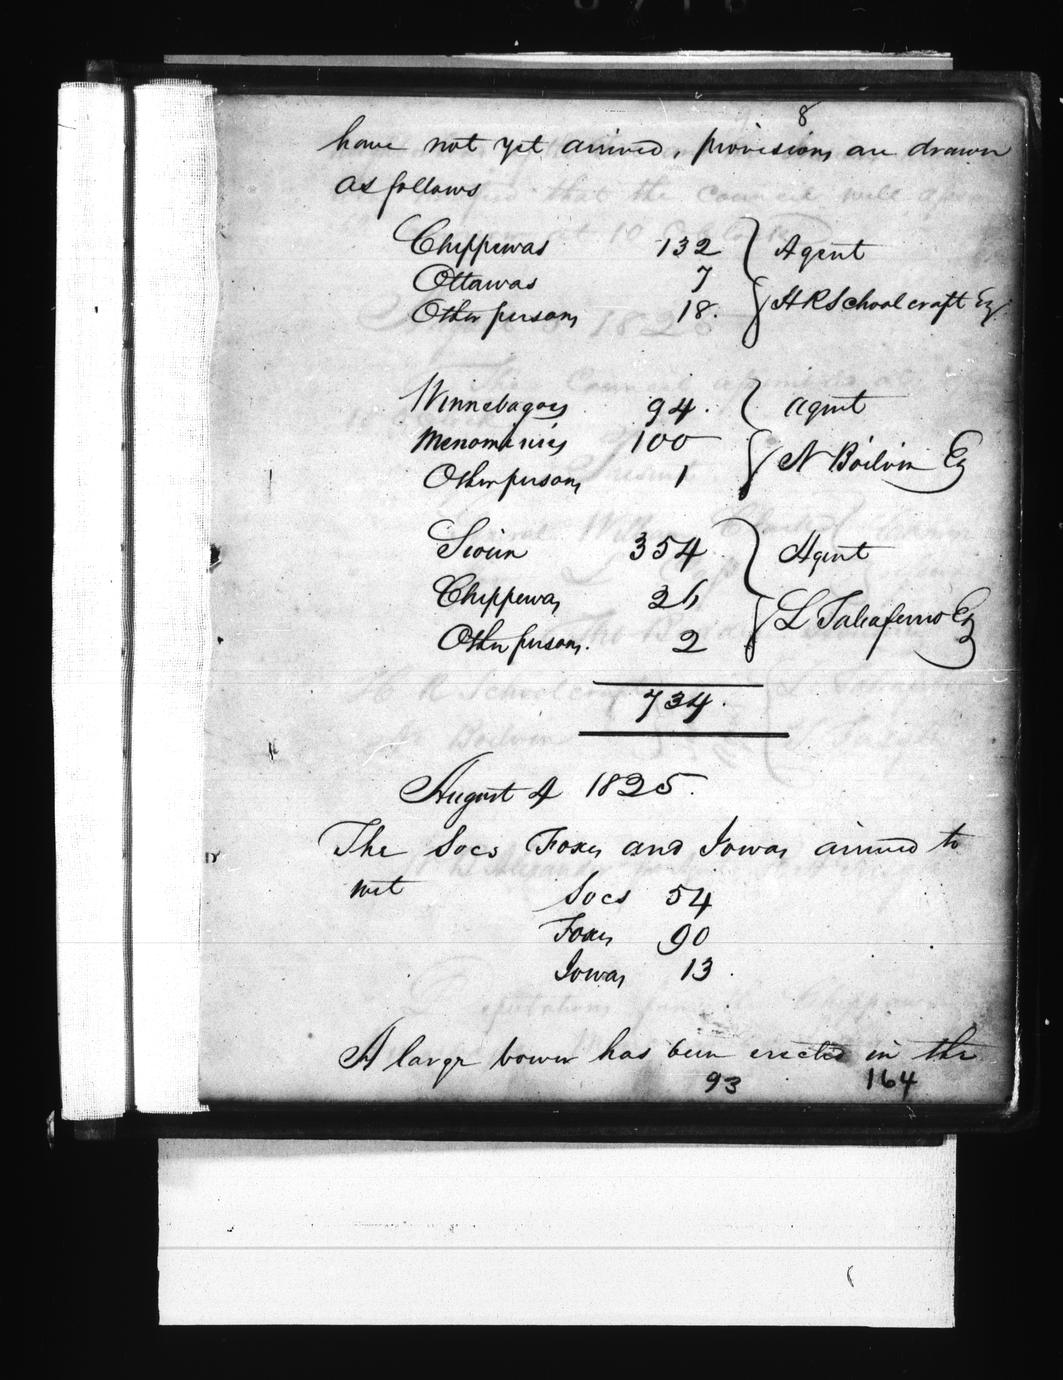 8
have not yet arrived, provisions are drawn
as follows
Chippewas 132 Agent
Ottawas 7
Other persons 18. H R Schoolcraft Esq
Winnebagoes 94. Agent
Menominies 100
Other persons 1 N Boilvin Esq
Sioux 354 Agent
Chippewas 26
Other persons. 2 L Taliaferro Esq
734.
August 4 1825.
The Socs Foxes and Iowas arrived to
wit Socs 54
Foxes 90
Iowas 13.
A large bower has been erected in the
93 164